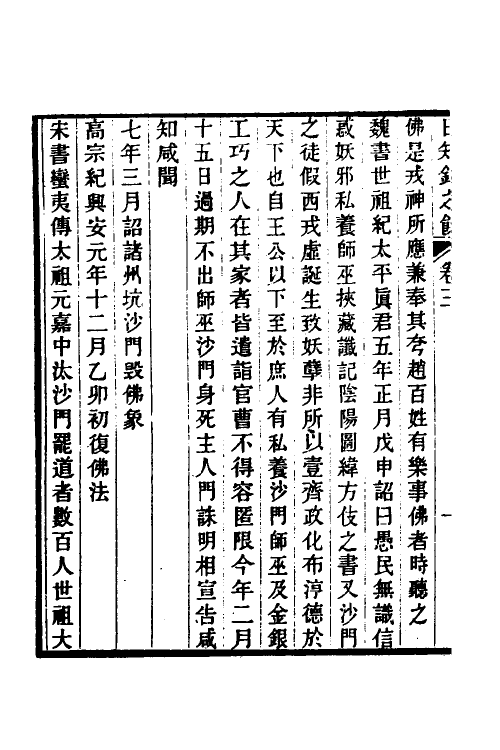 日知錄之餘 卷三 一
佛是戎神所應兼奉其夸趙百姓有樂事佛者時聽之
魏書世祖紀太平眞君五年正月戊申詔曰愚民無識信
惑妖邪私養師巫挾藏讖記陰陽圖緯方伎之書又沙門
之徒假西戎虛誕生致妖孽非所以壹齊政化布淳德於
天下也自王公以下至於庶人有私養沙門師巫及金銀
工巧之人在其家者皆遣詣官曹不得容匿限今年二月
十五日過期不出師巫沙門身死主人門誅明相宣告咸
知咸聞
七年三月詔諸州坑沙門毀佛象
高宗紀興安元年十二月乙卯初復佛法
宋書蠻夷傳太祖元嘉中汰沙門罷道者數百人世祖大